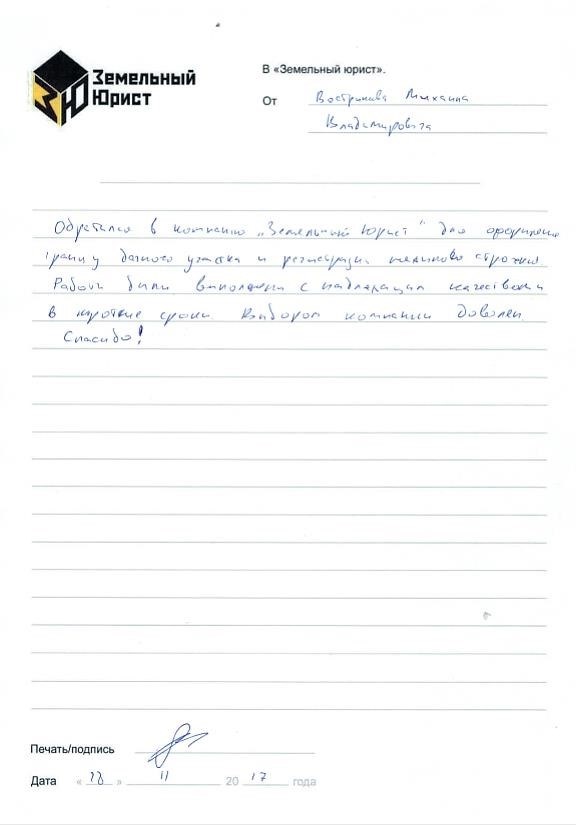 Земельный
Юрист
В «Земельный юрист».
От Вострикова Михаила
Владимировича
Обратился в компанию „Земельный Юрист“ для оформления
границ дачного участка и регистрации жилого строения.
Работы были выполнены с надлежащим качеством и
в короткие сроки. Выбором компании доволен.
Спасибо!
Печать/подпись
Дата « » 11 20 17 года